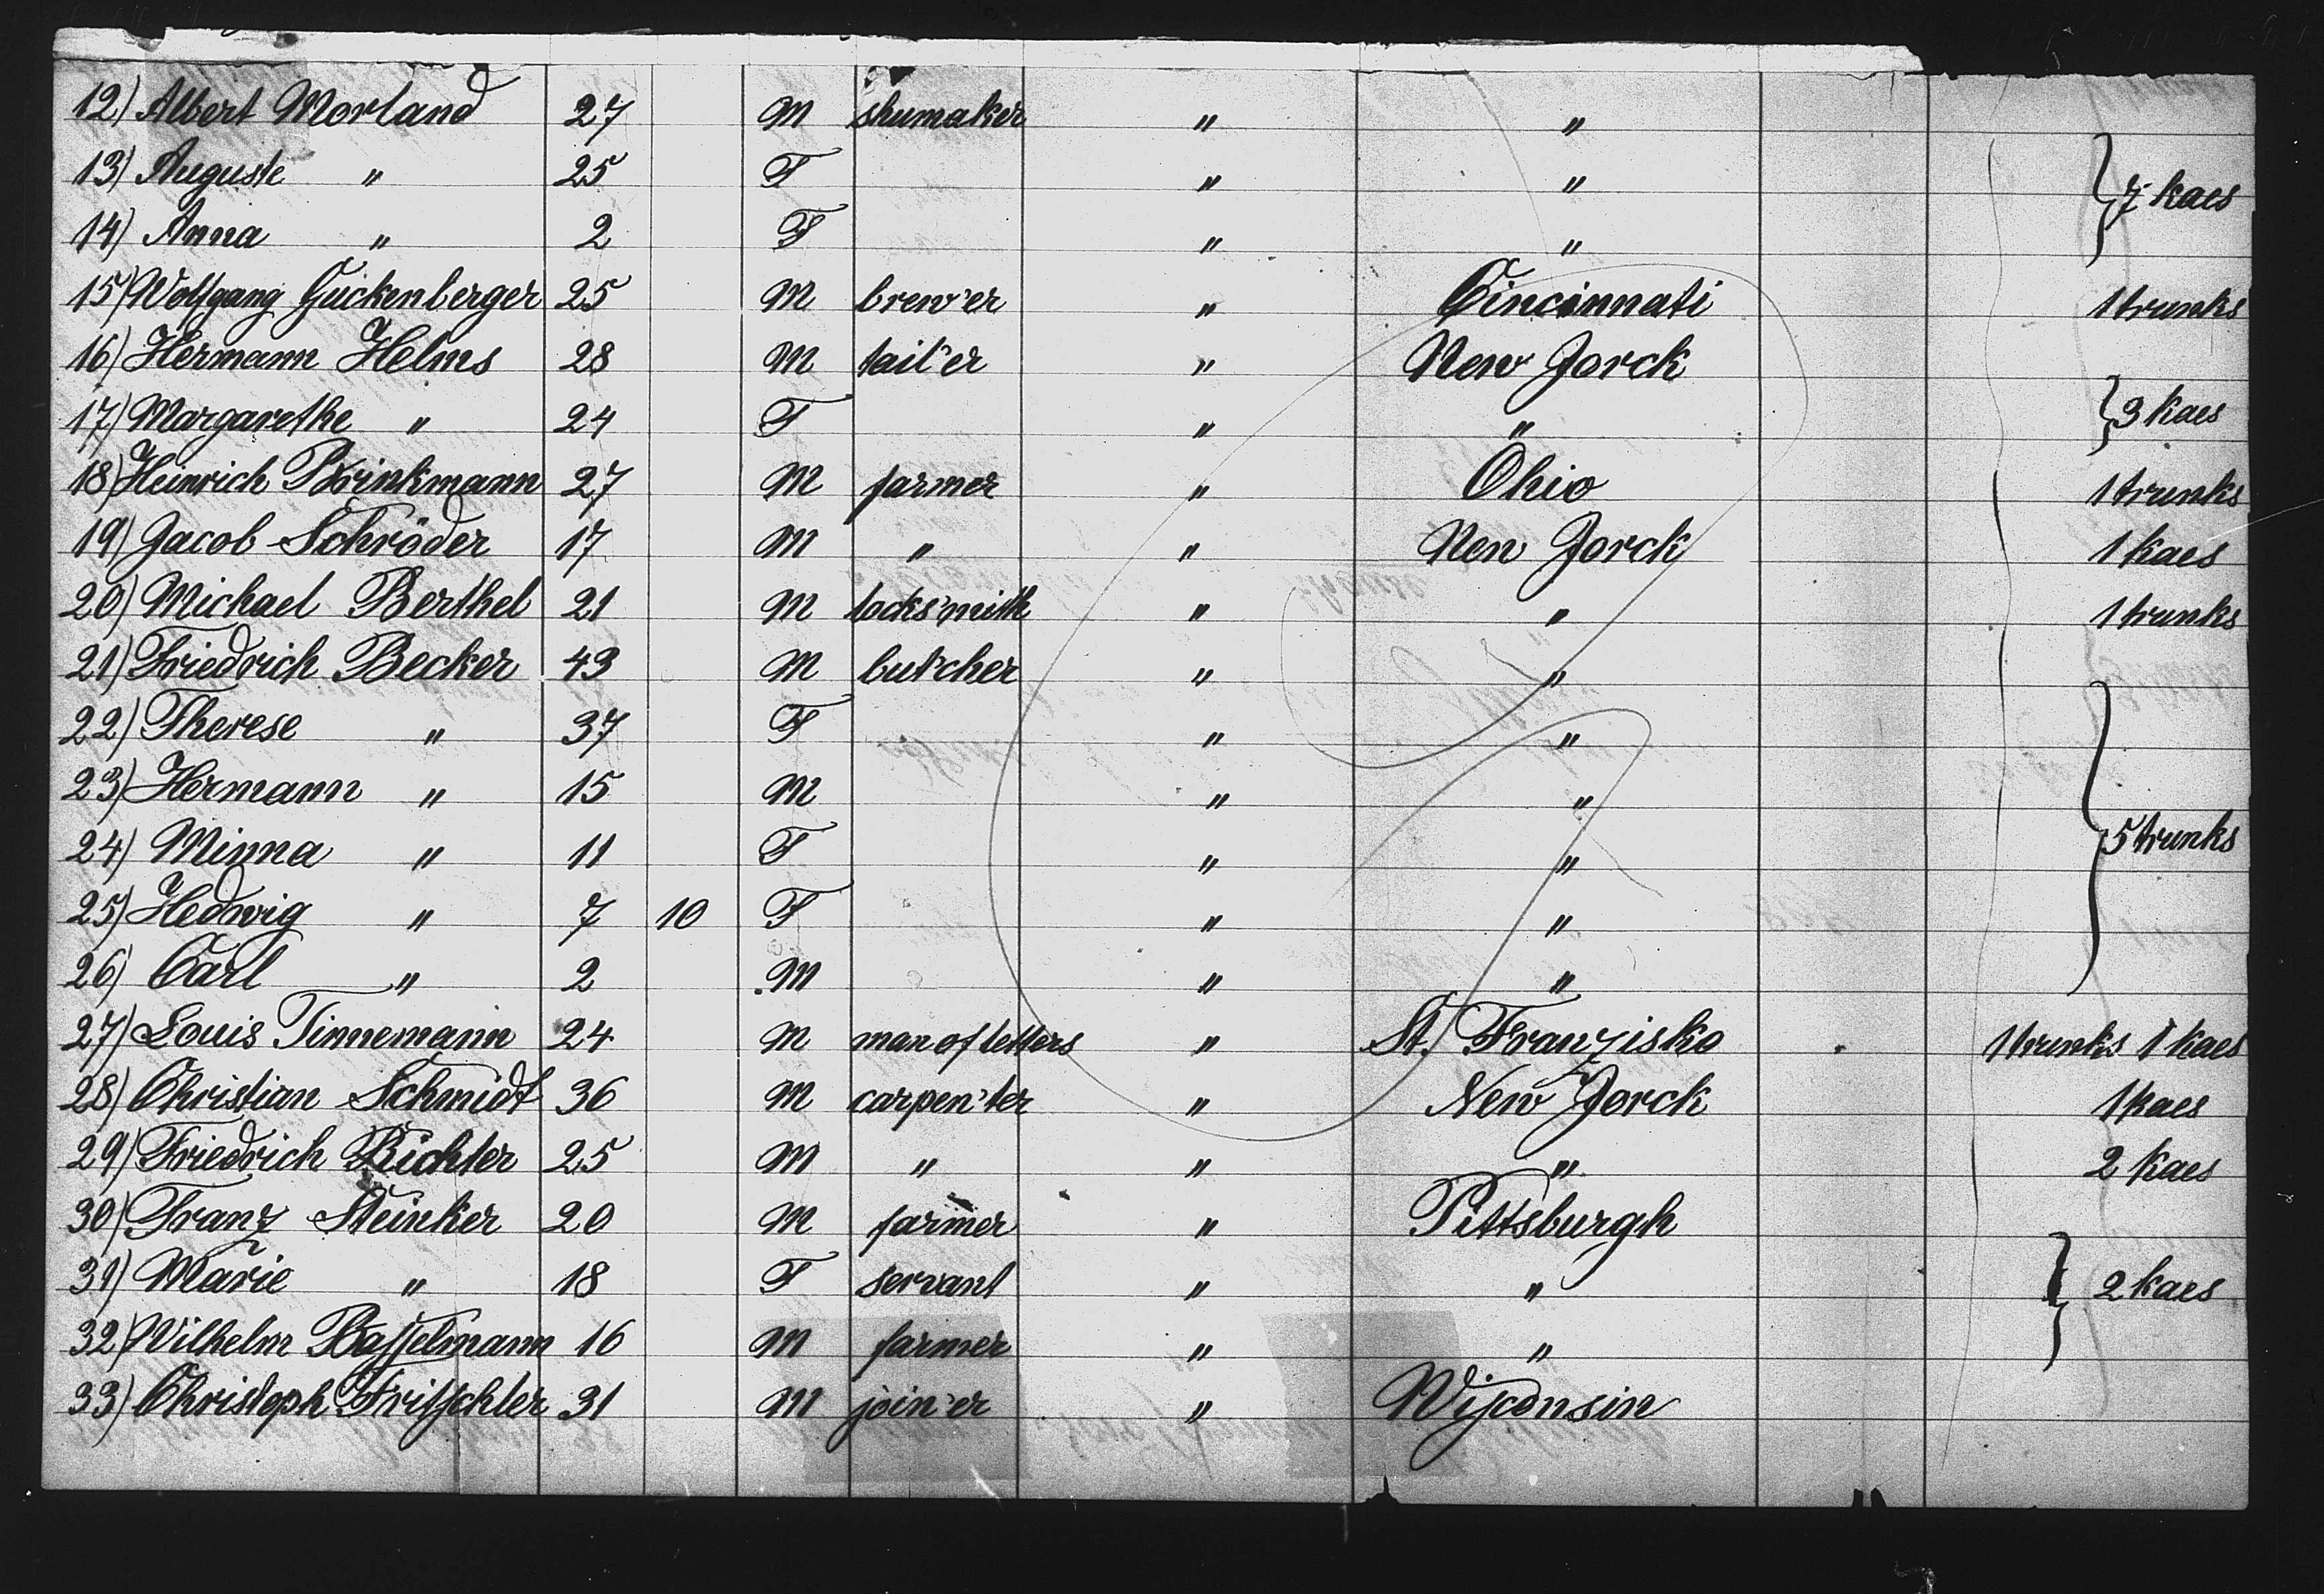 12) Albert Morland 27 M shumaker " "
13) Auguste " 25 F " "
7 kaes
14) Anna " 2 F " "
15) Wolfgang Guckenberger 25 M brew'er " Cincinnati 1 trunks
16) Hermann Helms 28 M tail'er " New Jorck
17) Margarethe " 24 F " " 3 kaes
18) Heinrich Brinkmann 27 M farmer " Ohio 1 trunks
19) Jacob Schröder 17 M " " New Jorck 1 kaes
20) Michael Berthel 21 M locks'mith " " 1 trunks
21) Friedrich Becker 43 M but'cher " "
22) Therese " 37 F " "
23) Hermann " 15 M " "
24) Minna " 11 F " " 5 trunks
25) Hedwig " 7 10 F " "
26) Carl " 2 M " "
27) Louis Tinnemann 24 M man of letters " St. Franzisko 1 trunks 1 kaes
28) Christian Schmidt 36 M carpen'ter " New Jorck 1 kaes
29) Friedrich Richter 25 M " " " 2 kaes
30) Franz Steinker 20 M farmer " Pittsburgh
31) Marie " 18 F servant " " 2 kaes
32) Wilhelm Baſselmann 16 M farmer " "
33) Christoph Fritſchler 31 M join'er " Wiſconsin